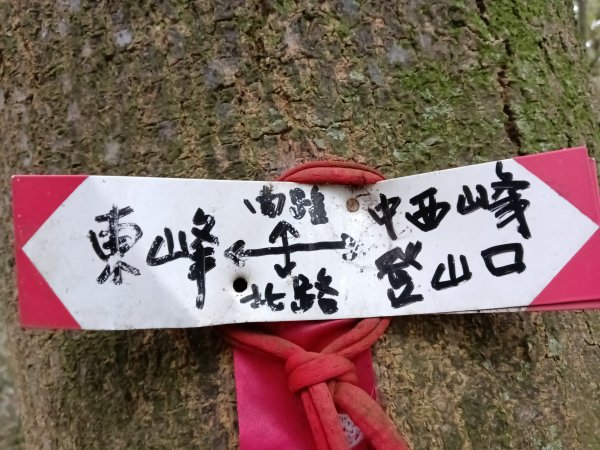 東峰
南
中西峰
北路
登山口